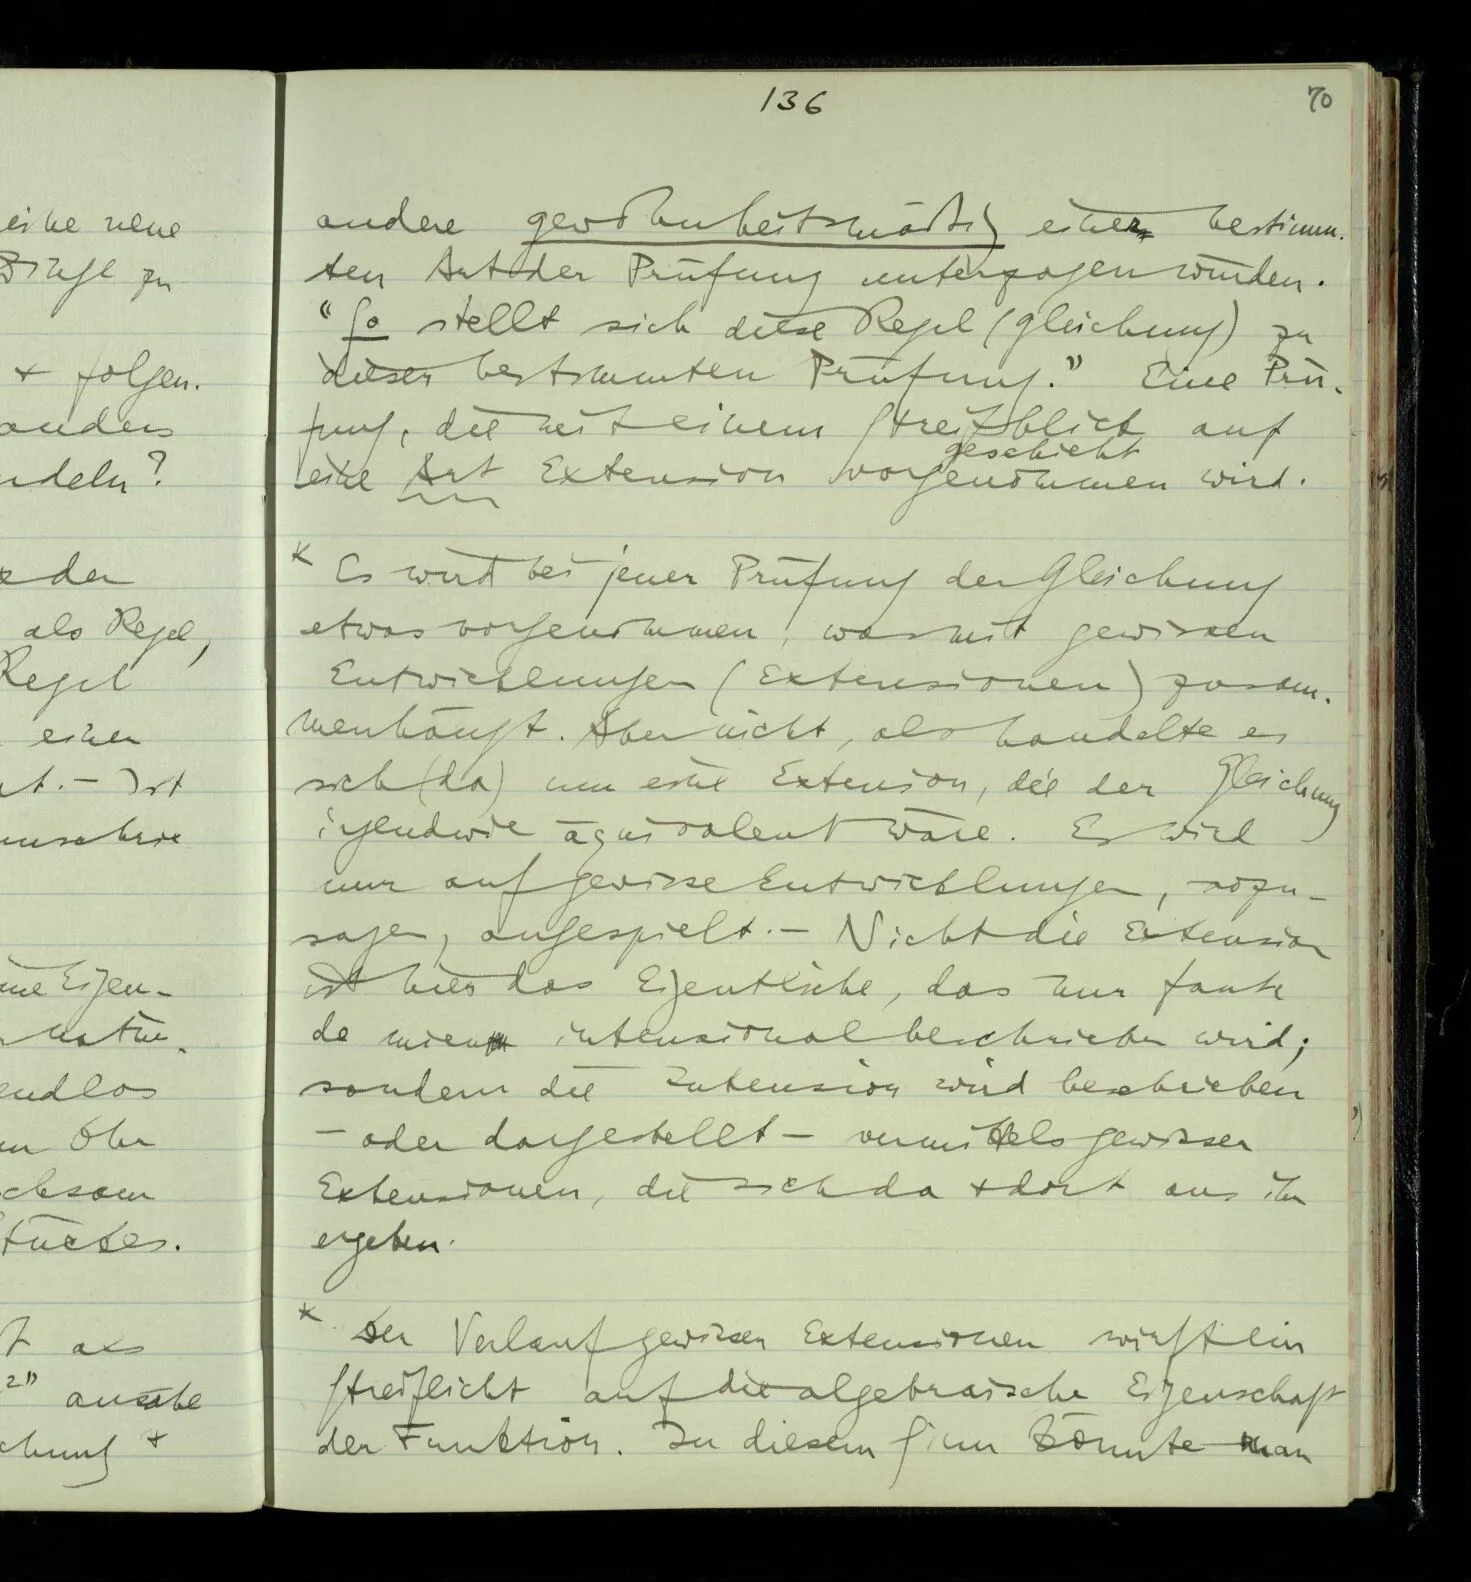 136
70
andere gewohnheitsmäßig einer bestimm-
ten Art der Prüfung unterzogen würden.
"So stellt sich diese Regel (Gleichung) zu
dieser bestimmten Prüfung." Eine Prü-
fung, die mit einem Streifblick auf
geschieht
eine Art Extension vorgenommen wird.
Es wird bei jener Prüfung der Gleichung
etwas vorgenommen, was mit gewissen
Entwicklungen (Extensionen) zusam-
menhängt. Aber nicht, als handelte es
sich (da) um eine Extension, die der Gleichung
irgendwie äquivalent wäre. Es wird
nur auf gewisse Entwicklungen, sozu-
sagen, angespielt. – Nicht die Extension
ist hier das Eigentliche, das nur faute
de mieux intensional beschrieben wird;
sondern die Intension wird beschrieben
– oder dargestellt – vermittels gewisser
Extensionen, die sich da + dort aus ihr
ergeben.
Der Verlauf gewisser Extensionen wirft ein
Streiflicht auf die algebraische Eigenschaft
der Funktion. In diesem Sinn könnte man
eine neue
Dinge zu
+ folgen.
anders
ndeln?
der
als Regel,
Regel
einer
t. – Ist
me Eigen-
endlos
Ohr
chsam
Stückes.
als
2"
chung +